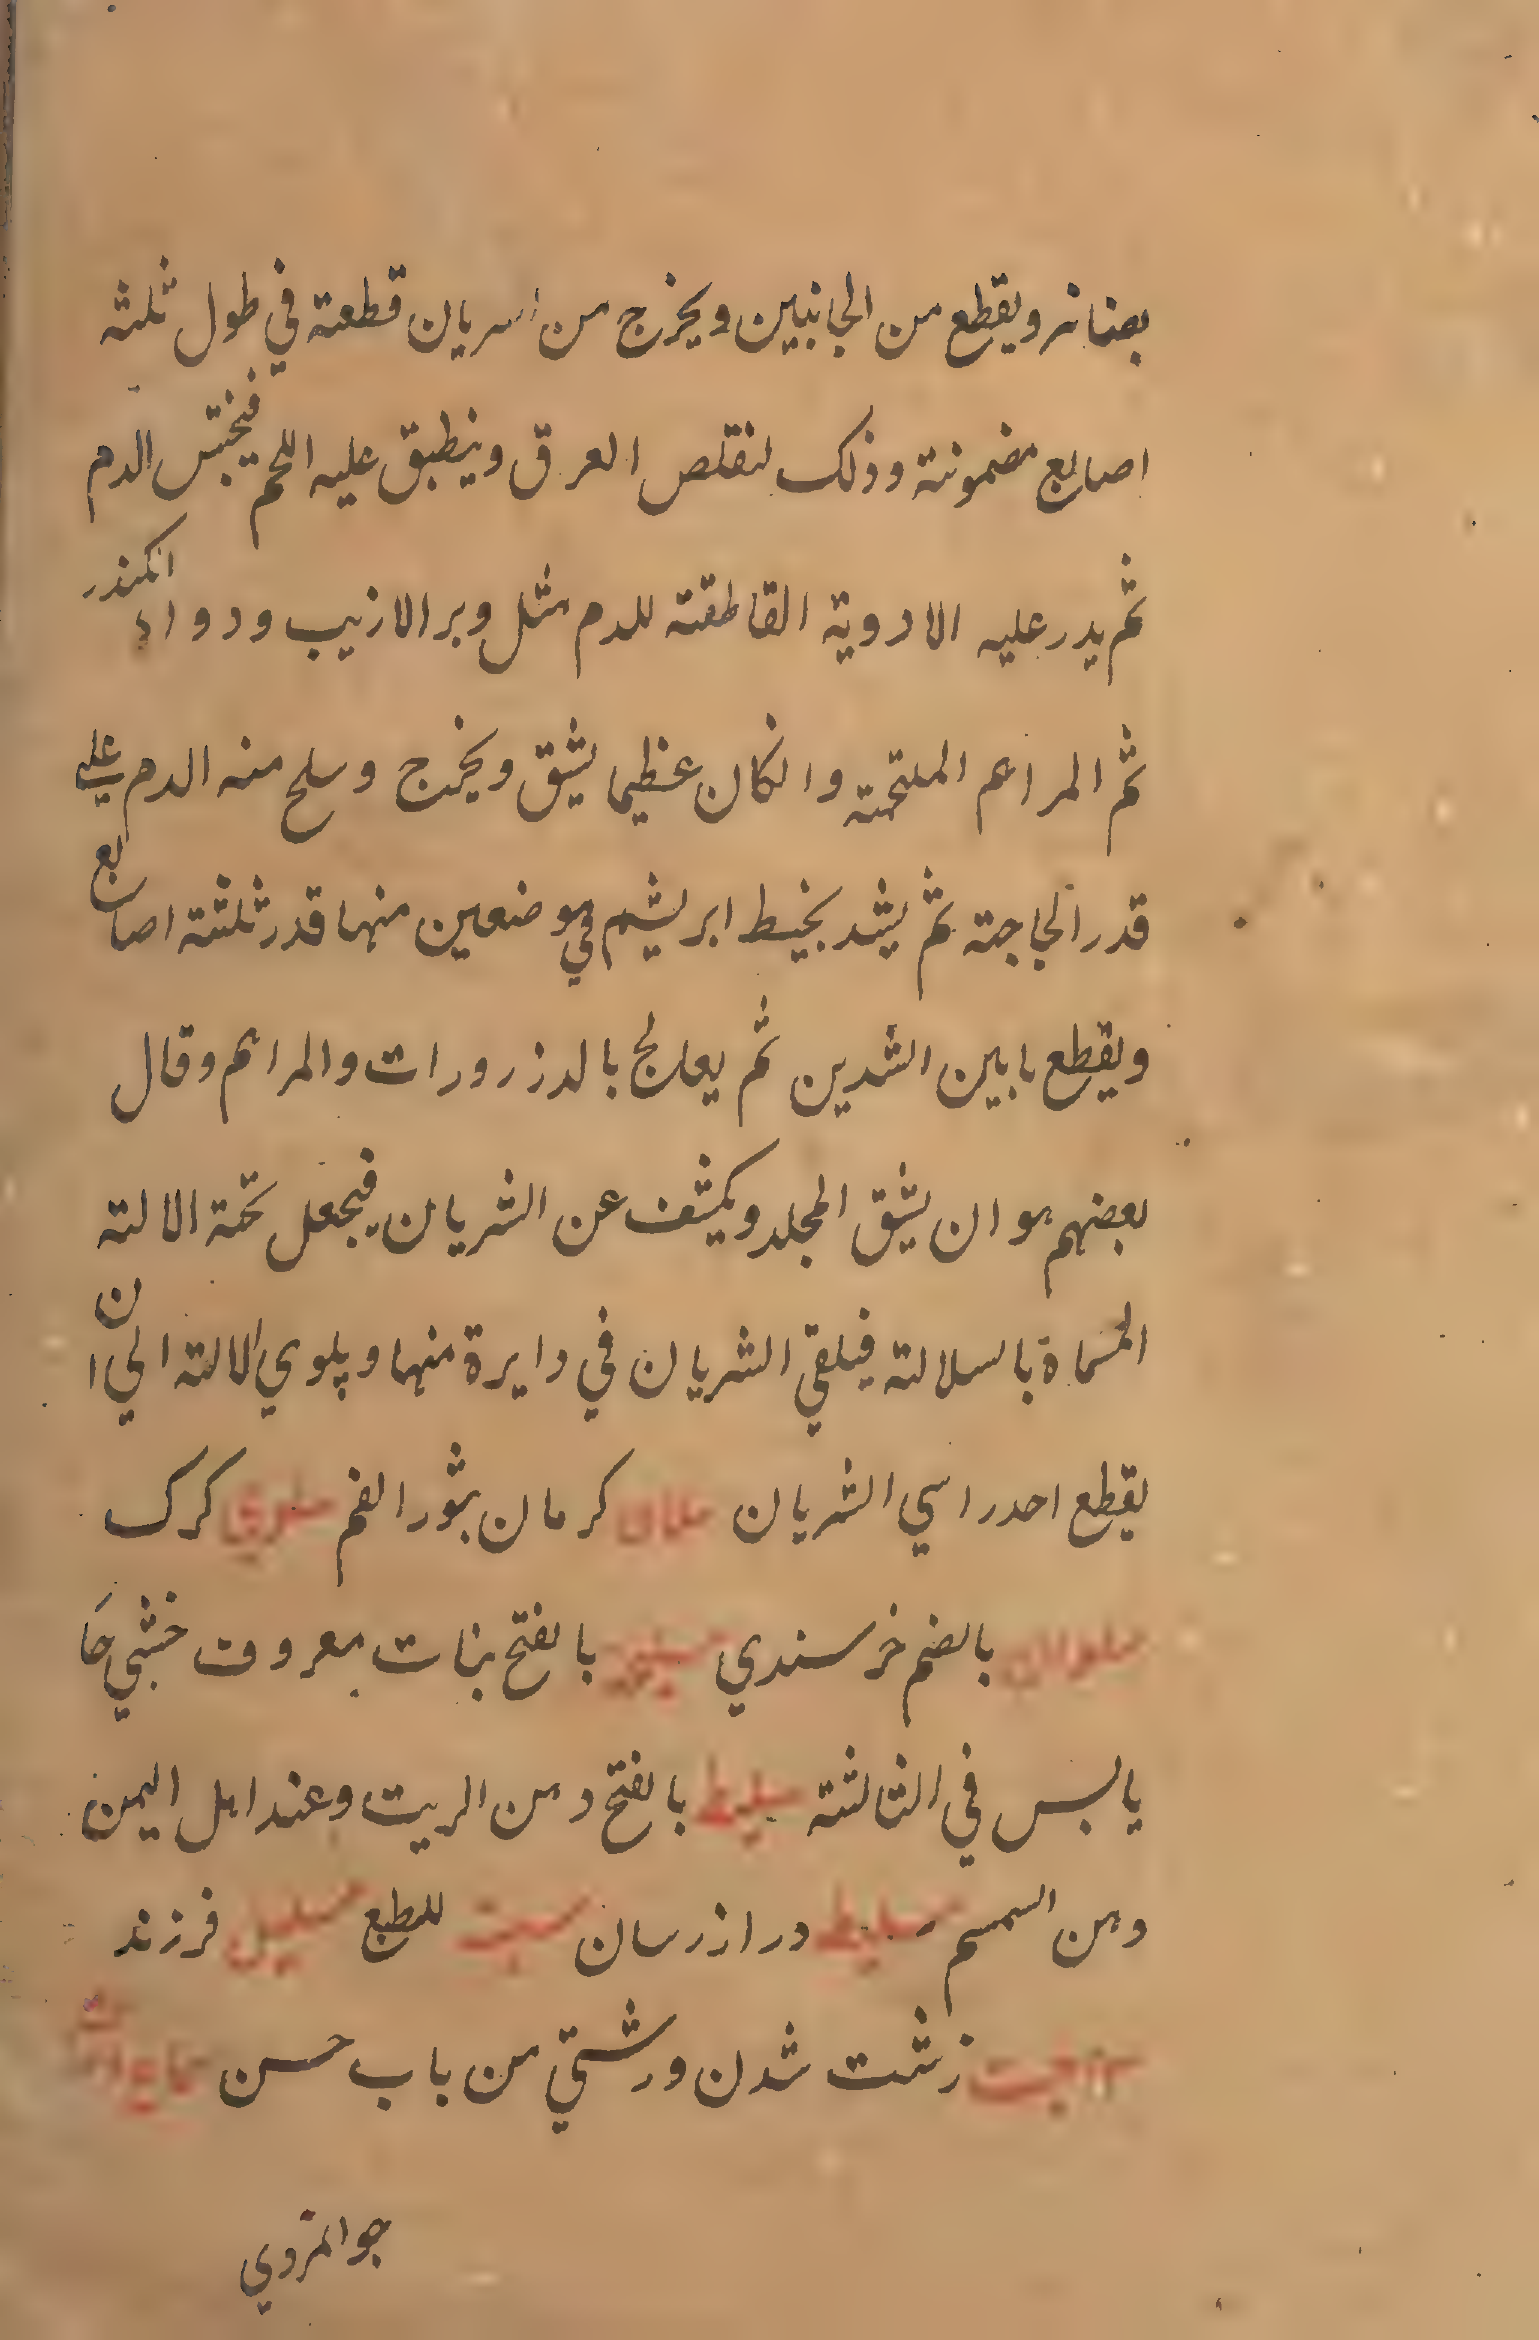 بصنانر ويقطع من الجانبين ويخرج من السريان قطعة في طول ثلثه
اصابع مضمونة وذلك لتقلص العرق وينطبق عليه اللحم فيحتبس الدم
ثم يدر عليه الادوية القاطعة للدم مثل وبر الارنب ودواء الكندر
ثم المراهم الملتحمة وانكان عظيما يشق ويخرج وسلح منه الدم علي
قدر الحاجة ثم يشد بخيط ابريشم في موضعين منها قدر ثلثة اصابع
ويقطع ما بين الشدين ثم يعالج بالدزرورات والمراهم وقال
بعضهم هو ان يشق الجلد ويكشف عن الشريان فيجعل تحته الالته
المسماة بالسلالته فيلقي الشريان في دايرة منها ويلوي الالته الي ان
يقطع احد راسي الشريان سلاق كرمان بثور الفم سلوي كرك
سلوان بالضم خرسندي بالفتح بنات معروف خشبي حا
يابس في الثالثته سليط بالفتح دهن الزيت وعند اهل اليمن
دهن السمسم سليط دراز رسان للطبع سليل فرزند
سماجت زشت شدن ورشتي من باب حسن
جوالمزدي